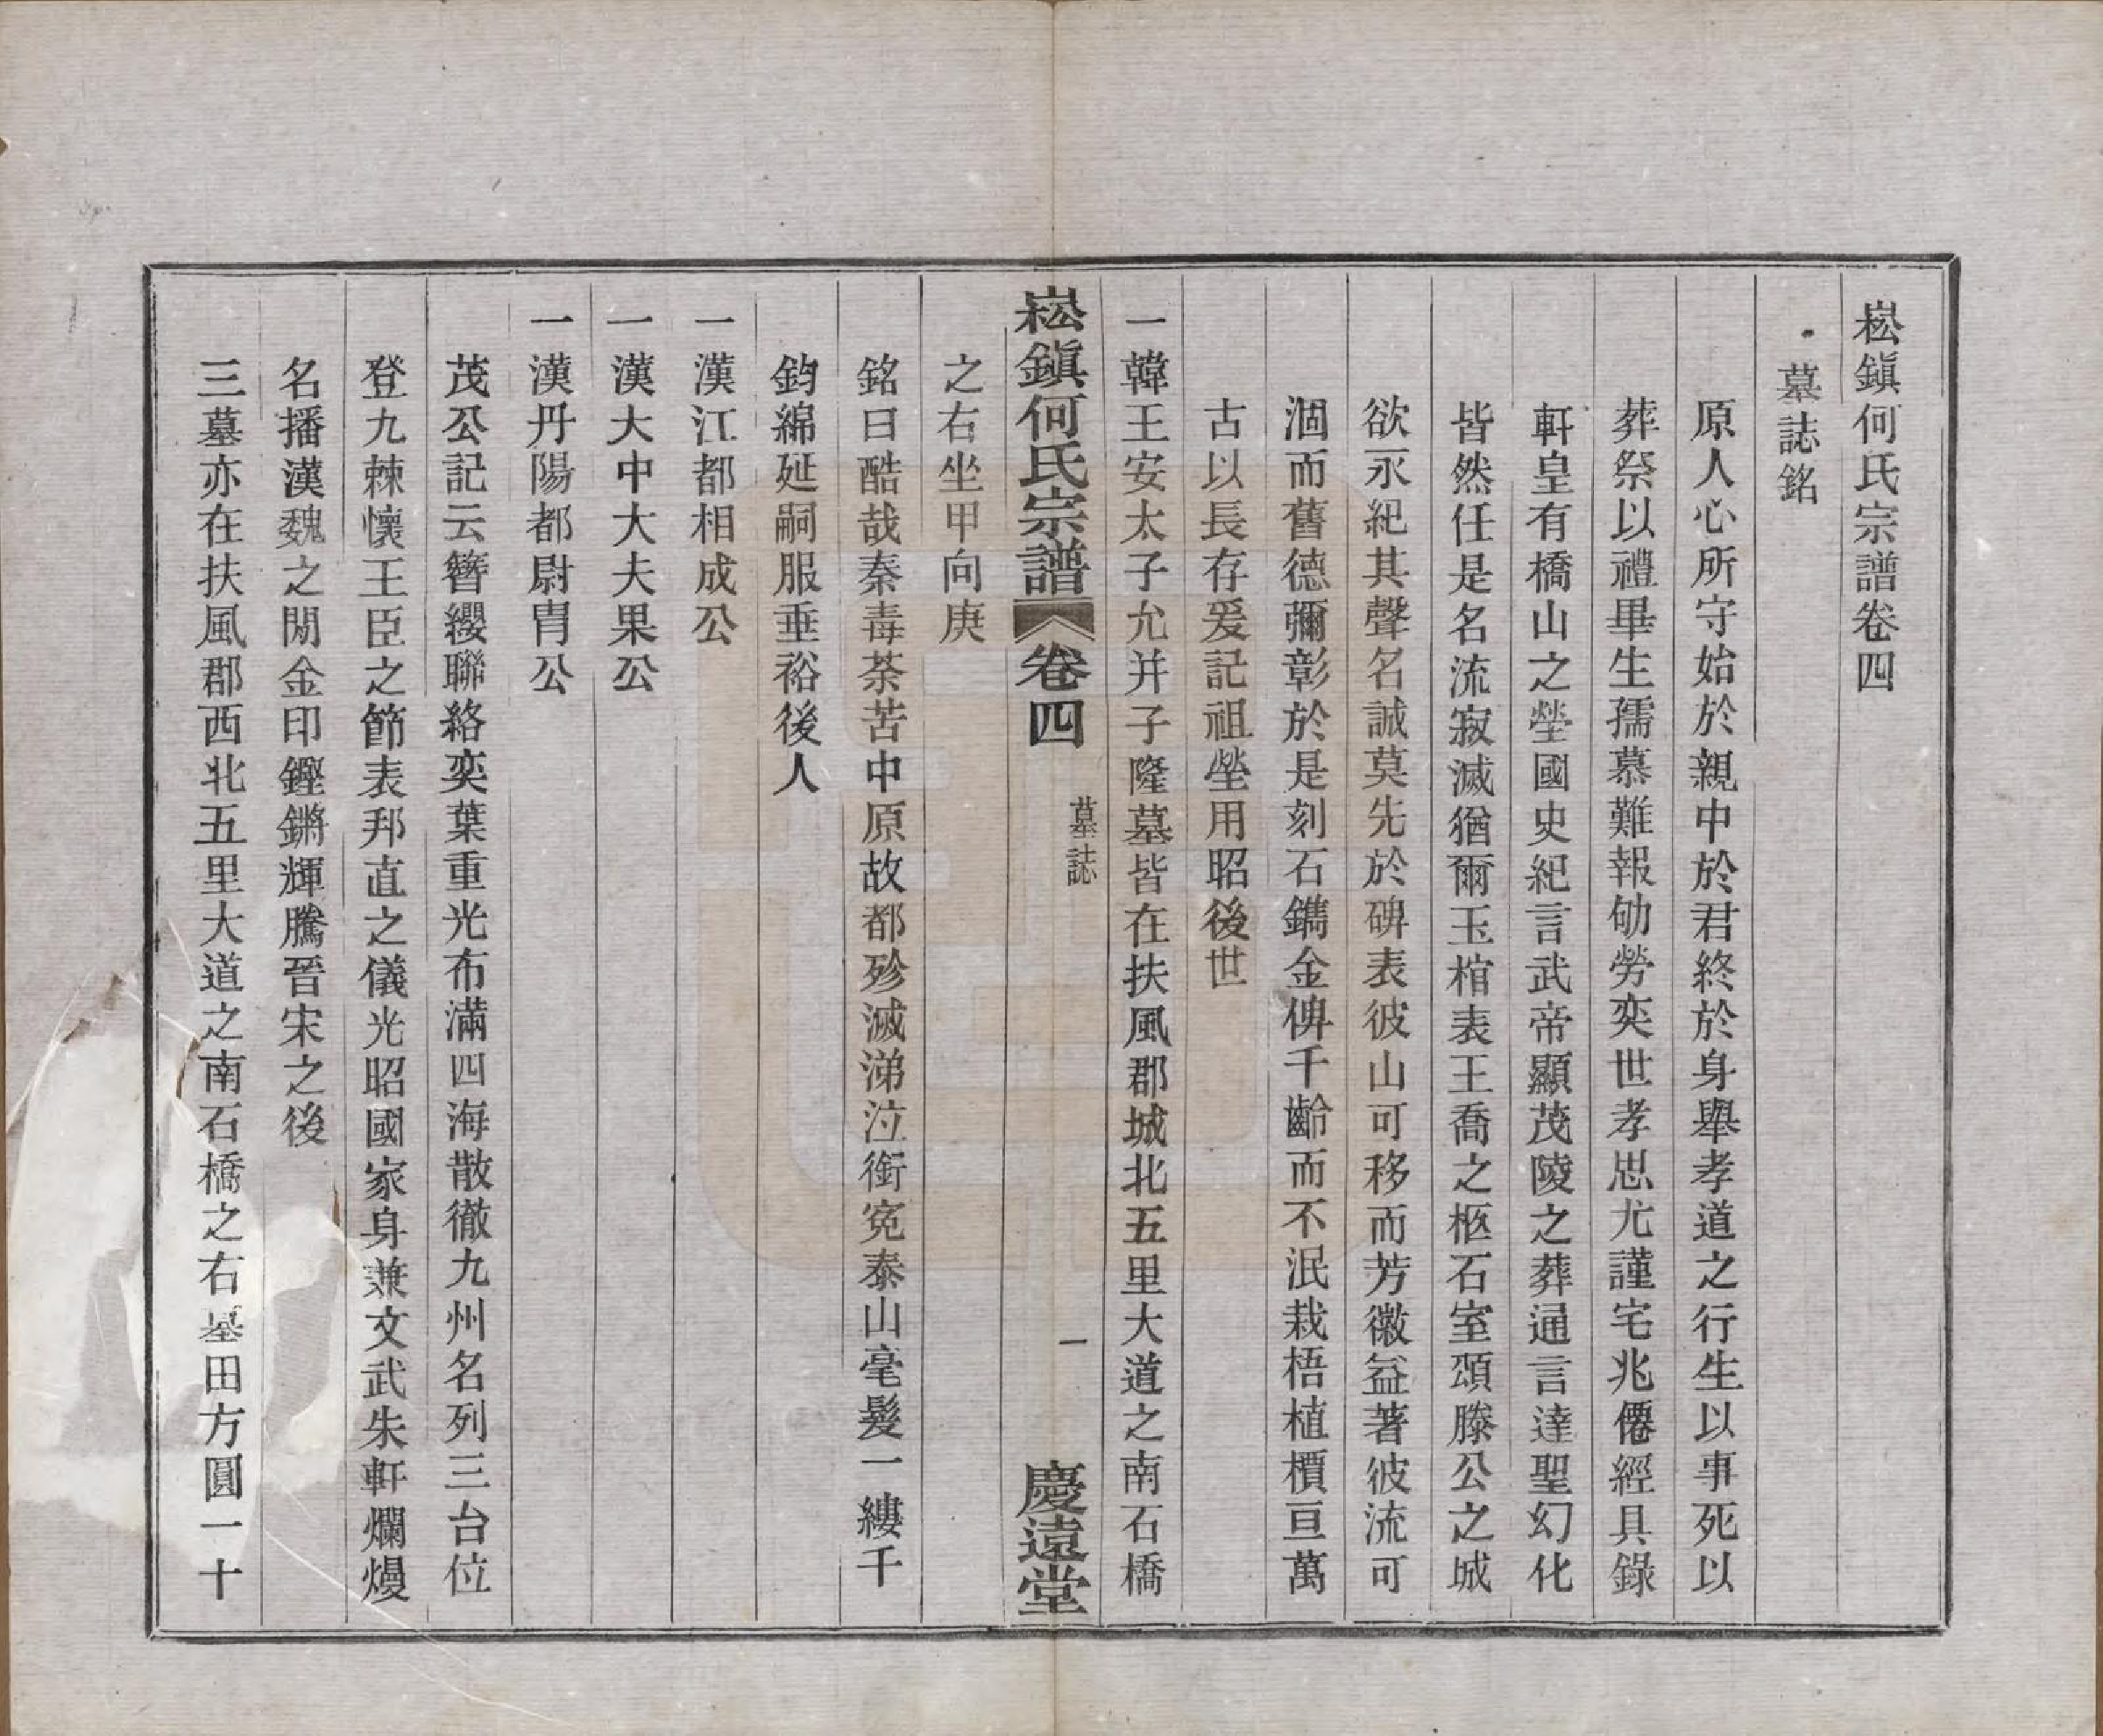 崧鎮何氏宗譜卷四
墓誌銘
原人心所守始於親中於君終於身舉孝道之行生以事死以
葬祭以禮畢生孺慕難報劬勞奕世孝思尤謹宅兆僊經具錄
軒皇有橋山之塋國史紀言武帝顯茂陵之葬通言達聖幻化
皆然任是名流寂滅猶爾玉棺表王喬之柩石室頌滕公之城
欲永紀其聲名誠莫先於碑表彼山可移而芳徽益著彼流可
涸而舊德彌彰於是刻石鐫金俾千齡而不泯栽梧植檟亘萬
古以長存爰記祖塋用昭後世
一韓王安太子允并子隆墓皆在扶風郡城北五里大道之南石橋
崧鎮何氏宗譜 卷四 墓誌 一 慶遠堂
之右坐甲向庚
銘曰酷哉秦毒荼苦中原故都殄滅涕泣銜冤泰山毫髮一縷千
鈞綿延嗣服垂裕後人
一漢江都相成公
一漢大中大夫果公
一漢丹陽都尉胄公
茂公記云簪纓聯絡奕葉重光布滿四海散徹九州名列三台位
登九棘懷王臣之節表邦直之儀光昭國家身兼文武朱軒爛熳
名播漢魏之閒金印鏗鏘輝騰晉宋之後
三墓亦在扶風郡西北五里大道之南石橋之右墓田方圓一十